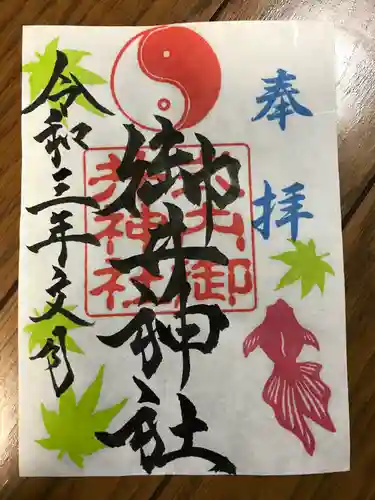 奉拝
御井神社
御
神社
令和三年文月